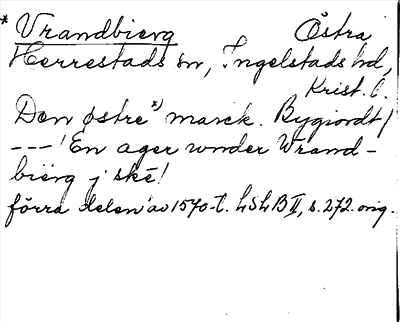 * Vrandbierg Östra
Herrestads sn, Ingelstads hd,
Krist. l.
Den østre" marck. Bygiordt/
---! En ager wnder Wrand-
biërg j skē!
förra delen av 1570-t. LSLB II, s. 272. orig.